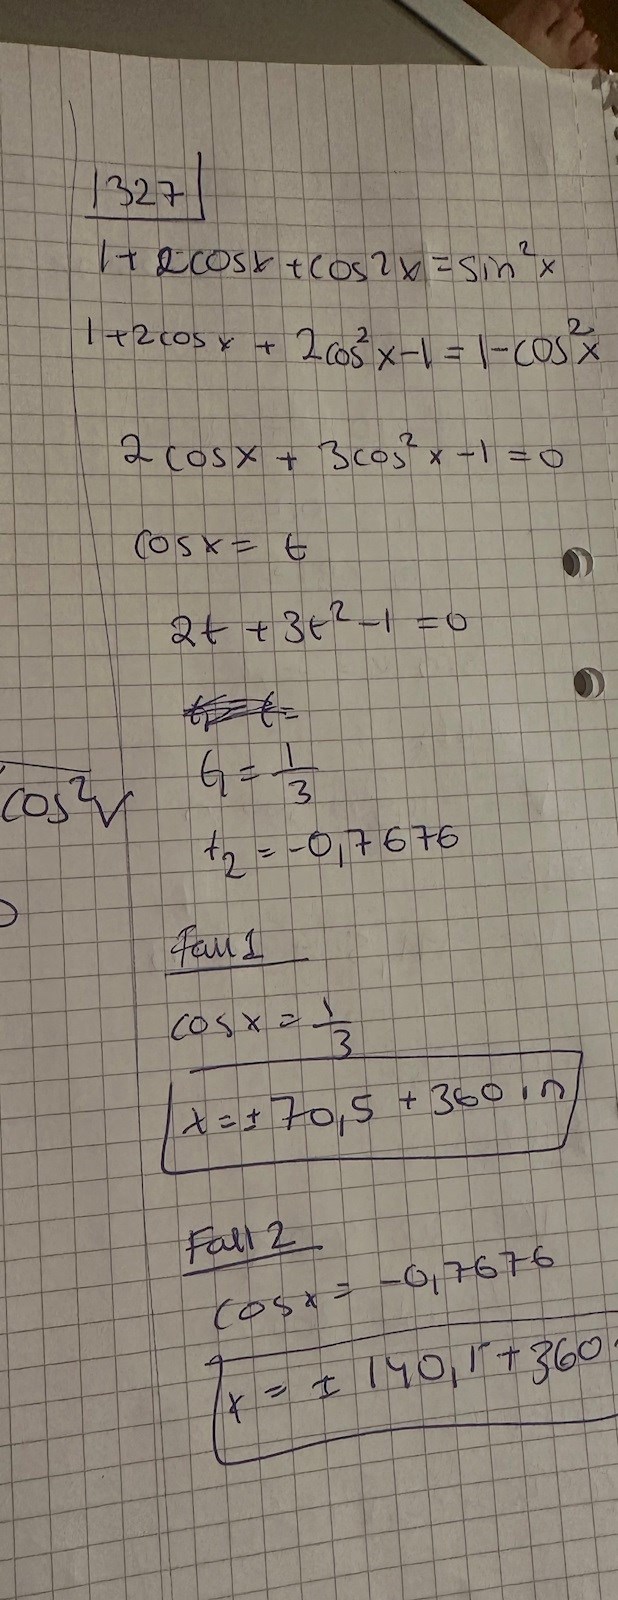 1327
1+2cosx+cos2x=sin²x
1+2cosx + 2cos²x-1=1-cos²x
2cosx + 3cos²x-1=0
cosx= t
2t +3t²-1=0
t₁=1/3
cos²v
t₂=-0,7676
Fall 1
cosx=1/3
x=±70,5 +360·n
Fall 2
cosx= -0,7676
x= ± 140,1+360